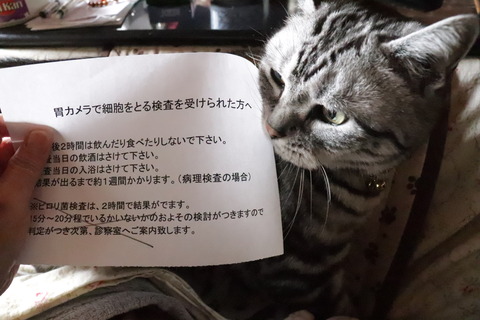 胃カメラで細胞をとる検査を受けられた方へ
後2時間は飲んだり食べたりしないで下さい。
後当日の飲酒はさけて下さい。
査当日の入浴はさけて下さい。
結果が出るまで約1週間かかります。(病理検査の場合)
ピロリ菌検査は、2時間で結果がでます。
15分～20分程でいるかいないかのおよその検討がつきますので
判定がつき次第、診察室へご案内致します。